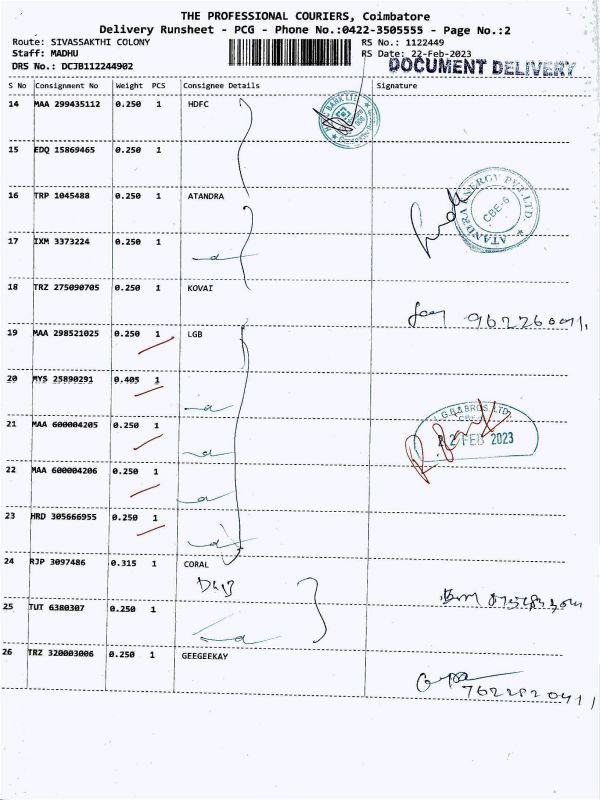 THE PROFESSIONAL COURIERS, Coimbatore
Delivery Runsheet - PCG - Phone No.:0422-3505555 - Page No.:2
Route: SIVASSAKTHI COLONY RS No.: 1122449
Staff: MADHU RS Date: 22-Feb-2023
DRS No.: DCJB112244902 DOCUMENT DELIVERY
S No Consignment No Weight PCS Consignee Details Signature
14 MAA 299435112 0.250 1 HDFC
BANK LTD
15 EDQ 15869465 0.250 1
16 TRP 1045488 0.250 1 ATANDRA
ATANDRA ENERGY PVT.LTD.
CBE-6
17 IXM 3373224 0.250 1
18 TRZ 275090705 0.250 1 KOVAI
19 MAA 298521025 0.250 1 LGB
20 MYS 25890291 0.405 1
21 MAA 600004205 0.250 1
L.G.B & BROS. LTD
22 FEB 2023
22 MAA 600004206 0.250 1
23 HRD 305666955 0.250 1
24 RJP 3097486 0.315 1 CORAL
25 TUT 6380307 0.250 1
26 TRZ 320003006 0.250 1 GEEGEEKAY